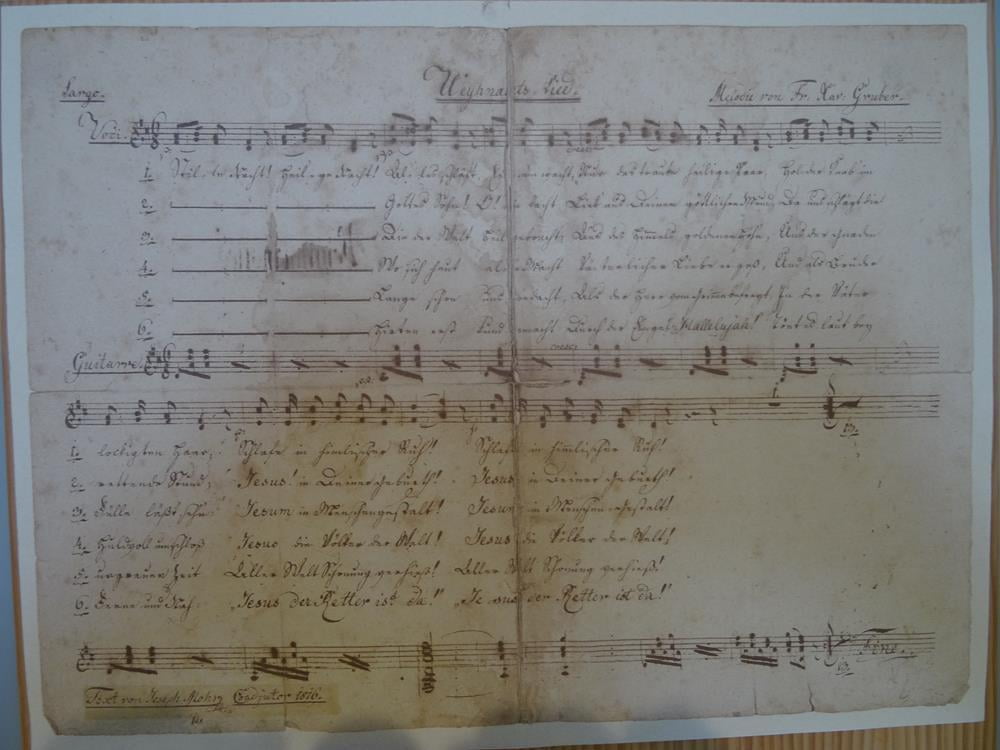 Largo.
Weyhnachts-Lied.
Melodie von Fr. Xav: Gruber.
Voci.
1. Stille Nacht! Heilige Nacht! Alles schläft, einsam wacht, Nur das traute heilige Paar, Holder Knab im
2. Gottes Sohn! O! wie lacht Lieb aus Deinem göttlichen Mund, Da uns schlägt die
3. Die der Welt Heil gebracht, Aus des Himmels goldenen Höhn, Aus der Gnaden
4. Wo sich heut alle Macht Väterlicher Liebe ergoß, Und als Bruder
5. Lange schon uns bedacht, Als der Herr vom Grimme befreyt, In der Väter
6. Hirten erst kund gemacht Durch der Engel „Hallelujah!" Tönt es laut bey
Guitarre.
cresc:
1. lockigten Haar; Schlafe in himlischer Ruh! Schlafe in himlischer Ruh!
2. rettende Stund; Jesus! in Deiner Geburth! Jesus in Deiner Geburth!
3. Fülle läßt sehn: Jesum in Menschengestalt! Jesum in Menschengestalt!
4. Huldvoll umschloß Jesus die Völker der Welt! Jesus die Völker der Welt!
5. urgrauer Zeit Aller Welt Schonung verhieß! Aller Welt Schonung verhieß!
6. Ferne und Nah: „Jesus der Retter ist da!" „Jesus der Retter ist da!"
Fine.
Text von Joseph Mohr Coadjutor 1816.